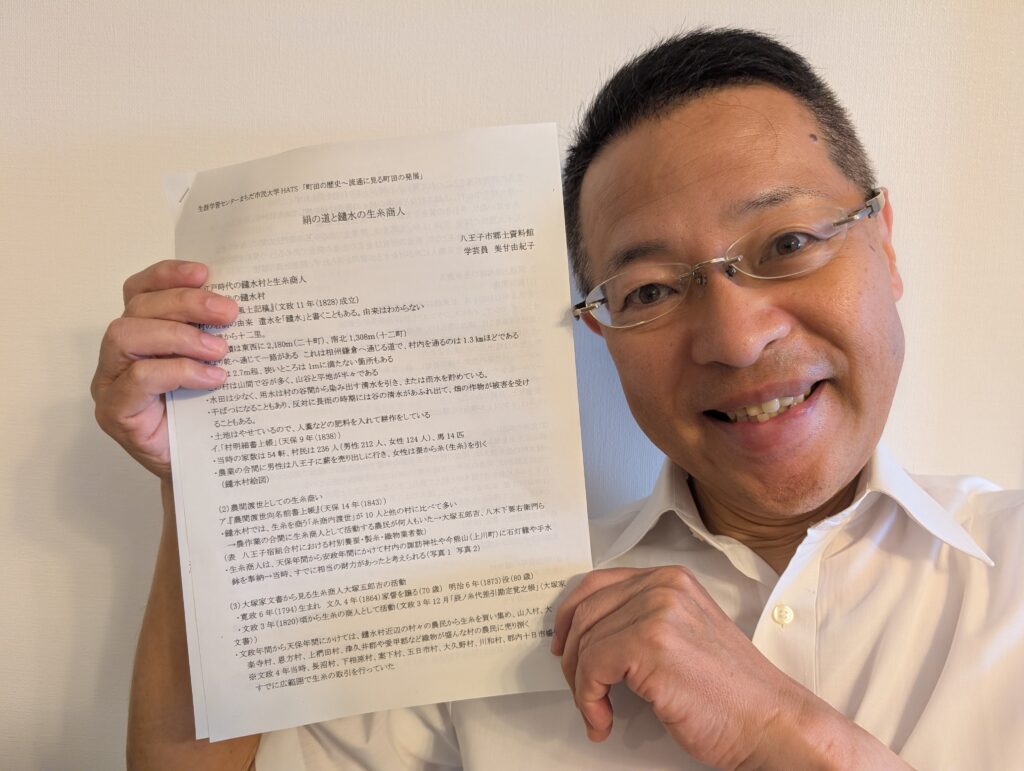 生涯学習センターまちだ市民大学HATS 「町田の歴史~流通に見る町田の発展」
絹の道と鑓水の生糸商人
八王子市郷土資料館
学芸員 美甘由紀子
江戸時代の鑓水村と生糸商人
の鑓水村
風土記稿』(文政11年(1828)成立)
の由来 遣水を「鑓水」と書くこともある。由来はわからない
から十二里。
は東西に2,180m(二十町)、南北1,308m(十二町)
乾へ通じて一路がある これは相州鎌倉へ通じる道で、村内を通るのは1.3㎞ほどである
は2.7m程、狭いところは1mに満たない箇所もある
村は山間で谷が多く、山谷と平地が半々である
・水田は少なく、用水は村の谷間から染み出す清水を引き、または雨水を貯めている。
・干ばつになることもあり、反対に長雨の時期には谷の清水があふれ出て、畑の作物が被害を受け
ることもある。
・土地はやせているので、人糞などの肥料を入れて耕作をしている
イ.「村明細書上帳」(天保9年(1838))
・当時の家数は54軒、村民は236人(男性212人、女性124人)、馬14匹
・農業の合間に男性は八王子に薪を売り出しに行き、女性は蚕から糸(生糸)を引く
(鑓水村絵図)
(2)農間渡世としての生糸商い
ア.『農間渡世向名前書上帳』(天保14年(1843))
・鑓水村では、生糸を商う「糸商内渡世」が10人と他の村に比べて多い
→農作業の合間に生糸商人として活動する農民が何人もいた→大塚五郎吉、八木下要右衛門ら
(表 八王子宿組合村における村別養蚕・製糸・織物業者数)
・生糸商人は、天保年間から安政年間にかけて村内の諏訪神社や今熊山(上川町)に石灯籠や手水
鉢を奉納→当時、すでに相当の財力があったと考えられる(写真1 写真2)
(3)大塚家文書から見る生糸商人大塚五郎吉の活動
・寛政6年(1794)生まれ 文久4年(1864)家督を譲る(70歳) 明治6年(1873)没(80歳)
・文政3年(1820)頃から生糸の商人として活動(文政3年12月「辰ノ糸代差引勘定覚之帳」(大塚家
文書))
・文政年間から天保年間にかけては、鑓水村近辺の村々の農民から生糸を買い集め、山入村、大
楽寺村、恩方村、上椚田村、津久井郡や愛甲郡など織物が盛んな村の農民に売り捌く
※文政4年当時、長沼村、下相原村、案下村、五日市村、大久野村、川和村、郡内十日市場
すでに広範囲で生糸の取引を行っていた